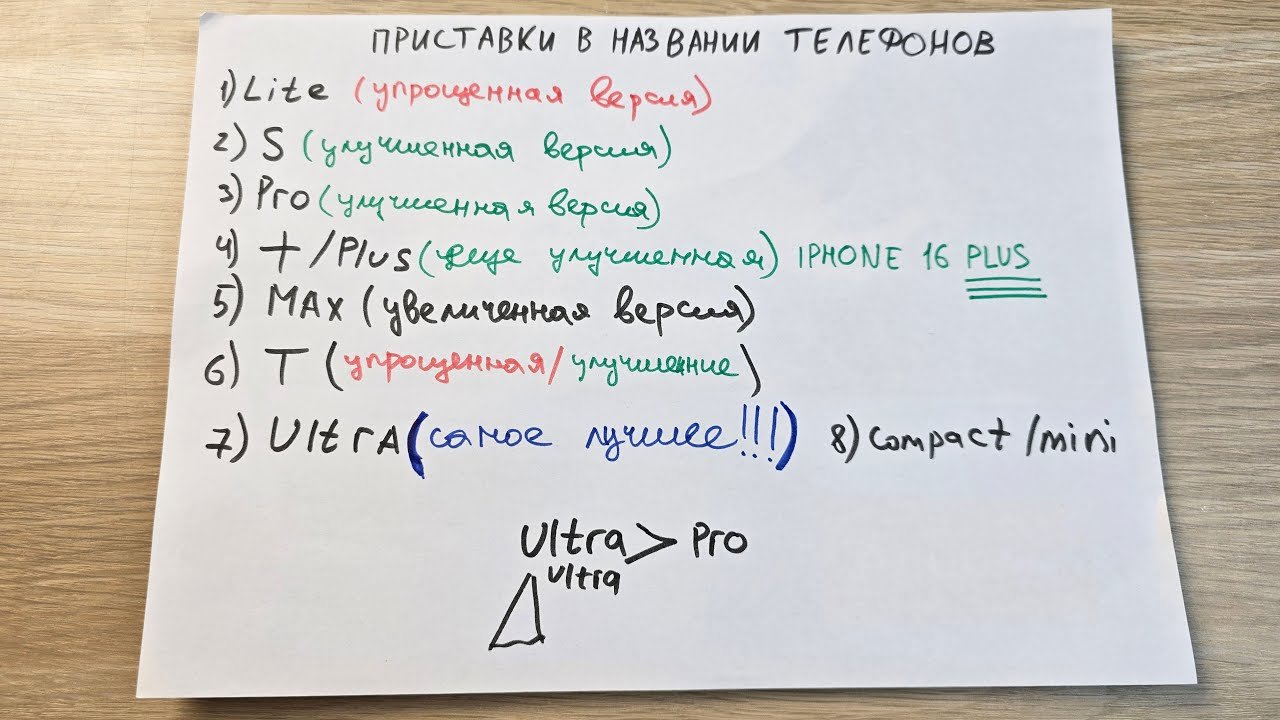 ПРИСТАВКИ В НАЗВАНИИ ТЕЛЕФОНОВ
1) Lite (упрощенная версия)
2) S (улучшенная версия)
3) Pro (улучшенная версия)
4) + / Plus (еще улучшенная) IPHONE 16 PLUS
5) MAX (увеличенная версия)
6) T (упрощенная/улучшение)
7) UltrA (самое лучшее!!!) 8) compact / mini
Ultra > Pro
Ultra